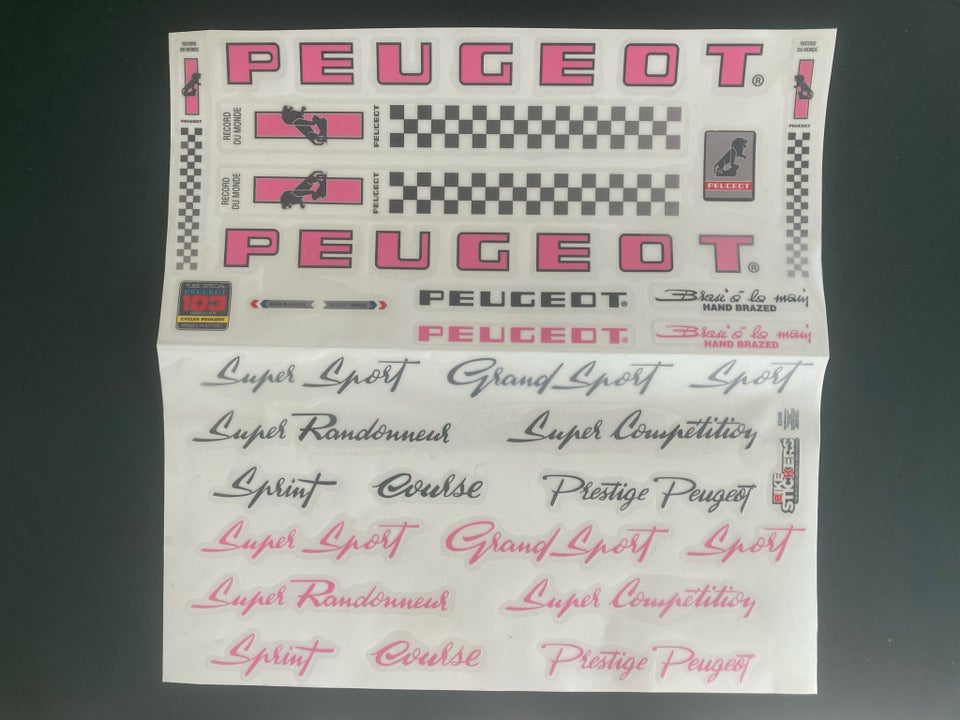 RECORD
DU MONDE
PEUGEOT
PEUGEOT®
RECORD
DU MONDE
PEUGEOT
RECORD
DU MONDE
PEUGEOT
PEUGEOT
RECORD
DU MONDE
PEUGEOT
PEUGEOT®
TUBE SPECIAL
PEUGEOT
103
CYCLES PEUGEOT
PEUGEOT®
Brasé à la main
HAND BRAZED
PEUGEOT®
Brasé à la main
HAND BRAZED
Super Sport Grand Sport Sport
Super Randonneur Super Compétition
Sprint Course Prestige Peugeot
BIKE
STICKERS
Super Sport Grand Sport Sport
Super Randonneur Super Compétition
Sprint Course Prestige Peugeot